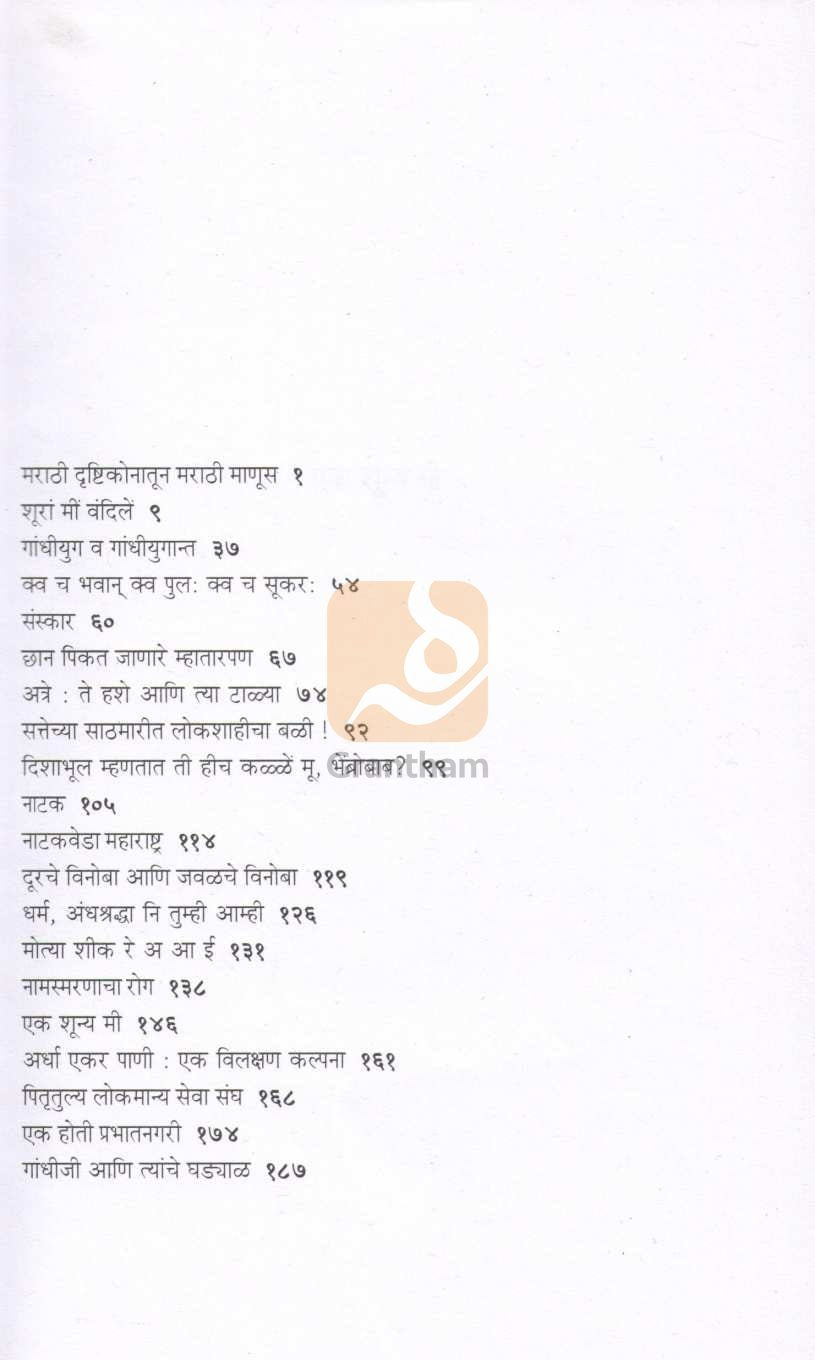 मराठी दृष्टिकोनातून मराठी माणूस १
शूरां मीं वंदिलें ९
गांधीयुग व गांधीयुगान्त ३७
क्व च भवान् क्व पुलः क्व च सूकरः ५४
संस्कार ६०
छान पिकत जाणारे म्हातारपण ६७
अत्रे : ते हशे आणि त्या टाळ्या ७४
सत्तेच्या साठमारीत लोकशाहीचा बळी ! ९२
दिशाभूल म्हणतात ती हीच कळ्ळें मू, ९९
Grantham
नाटक १०५
नाटकवेडा महाराष्ट्र ११४
दूरचे विनोबा आणि जवळचे विनोबा ११९
धर्म, अंधश्रद्धा नि तुम्ही आम्ही १२६
मोत्या शीक रे अ आ ई १३१
नामस्मरणाचा रोग १३८
एक शून्य मी १४६
अर्धा एकर पाणी : एक विलक्षण कल्पना १६१
पितृतुल्य लोकमान्य सेवा संघ १६८
एक होती प्रभातनगरी १७४
गांधीजी आणि त्यांचे घड्याळ १८७